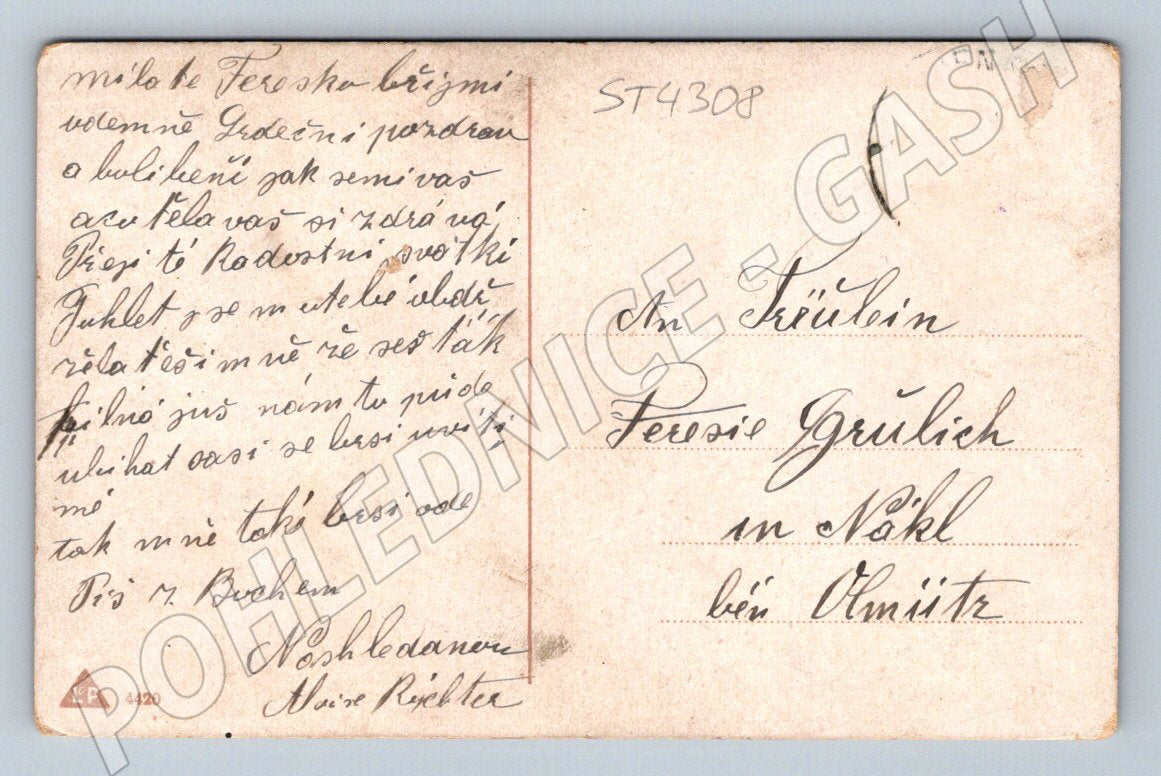 milá te Feresko břijmi
odemně Srdečni pozdrav
a bolibeňi jak semivaš
aco těla vaš si zdrává
Přeji tě Radostni svátki
Puhlet jsem utebé obdr
zěla těšimně že seš ťák
pilná juš nám to pude
ubihat sasi se brsi uviti
mé
tak mně také brsi ode
Piš z. Bochem
Nashledanou
Aloise Richter
ST4308
An Fräulein
Feresie Grŭlich
in Nákl
béu Olmütz
L&P 4420
POHLEDNICE - GASH